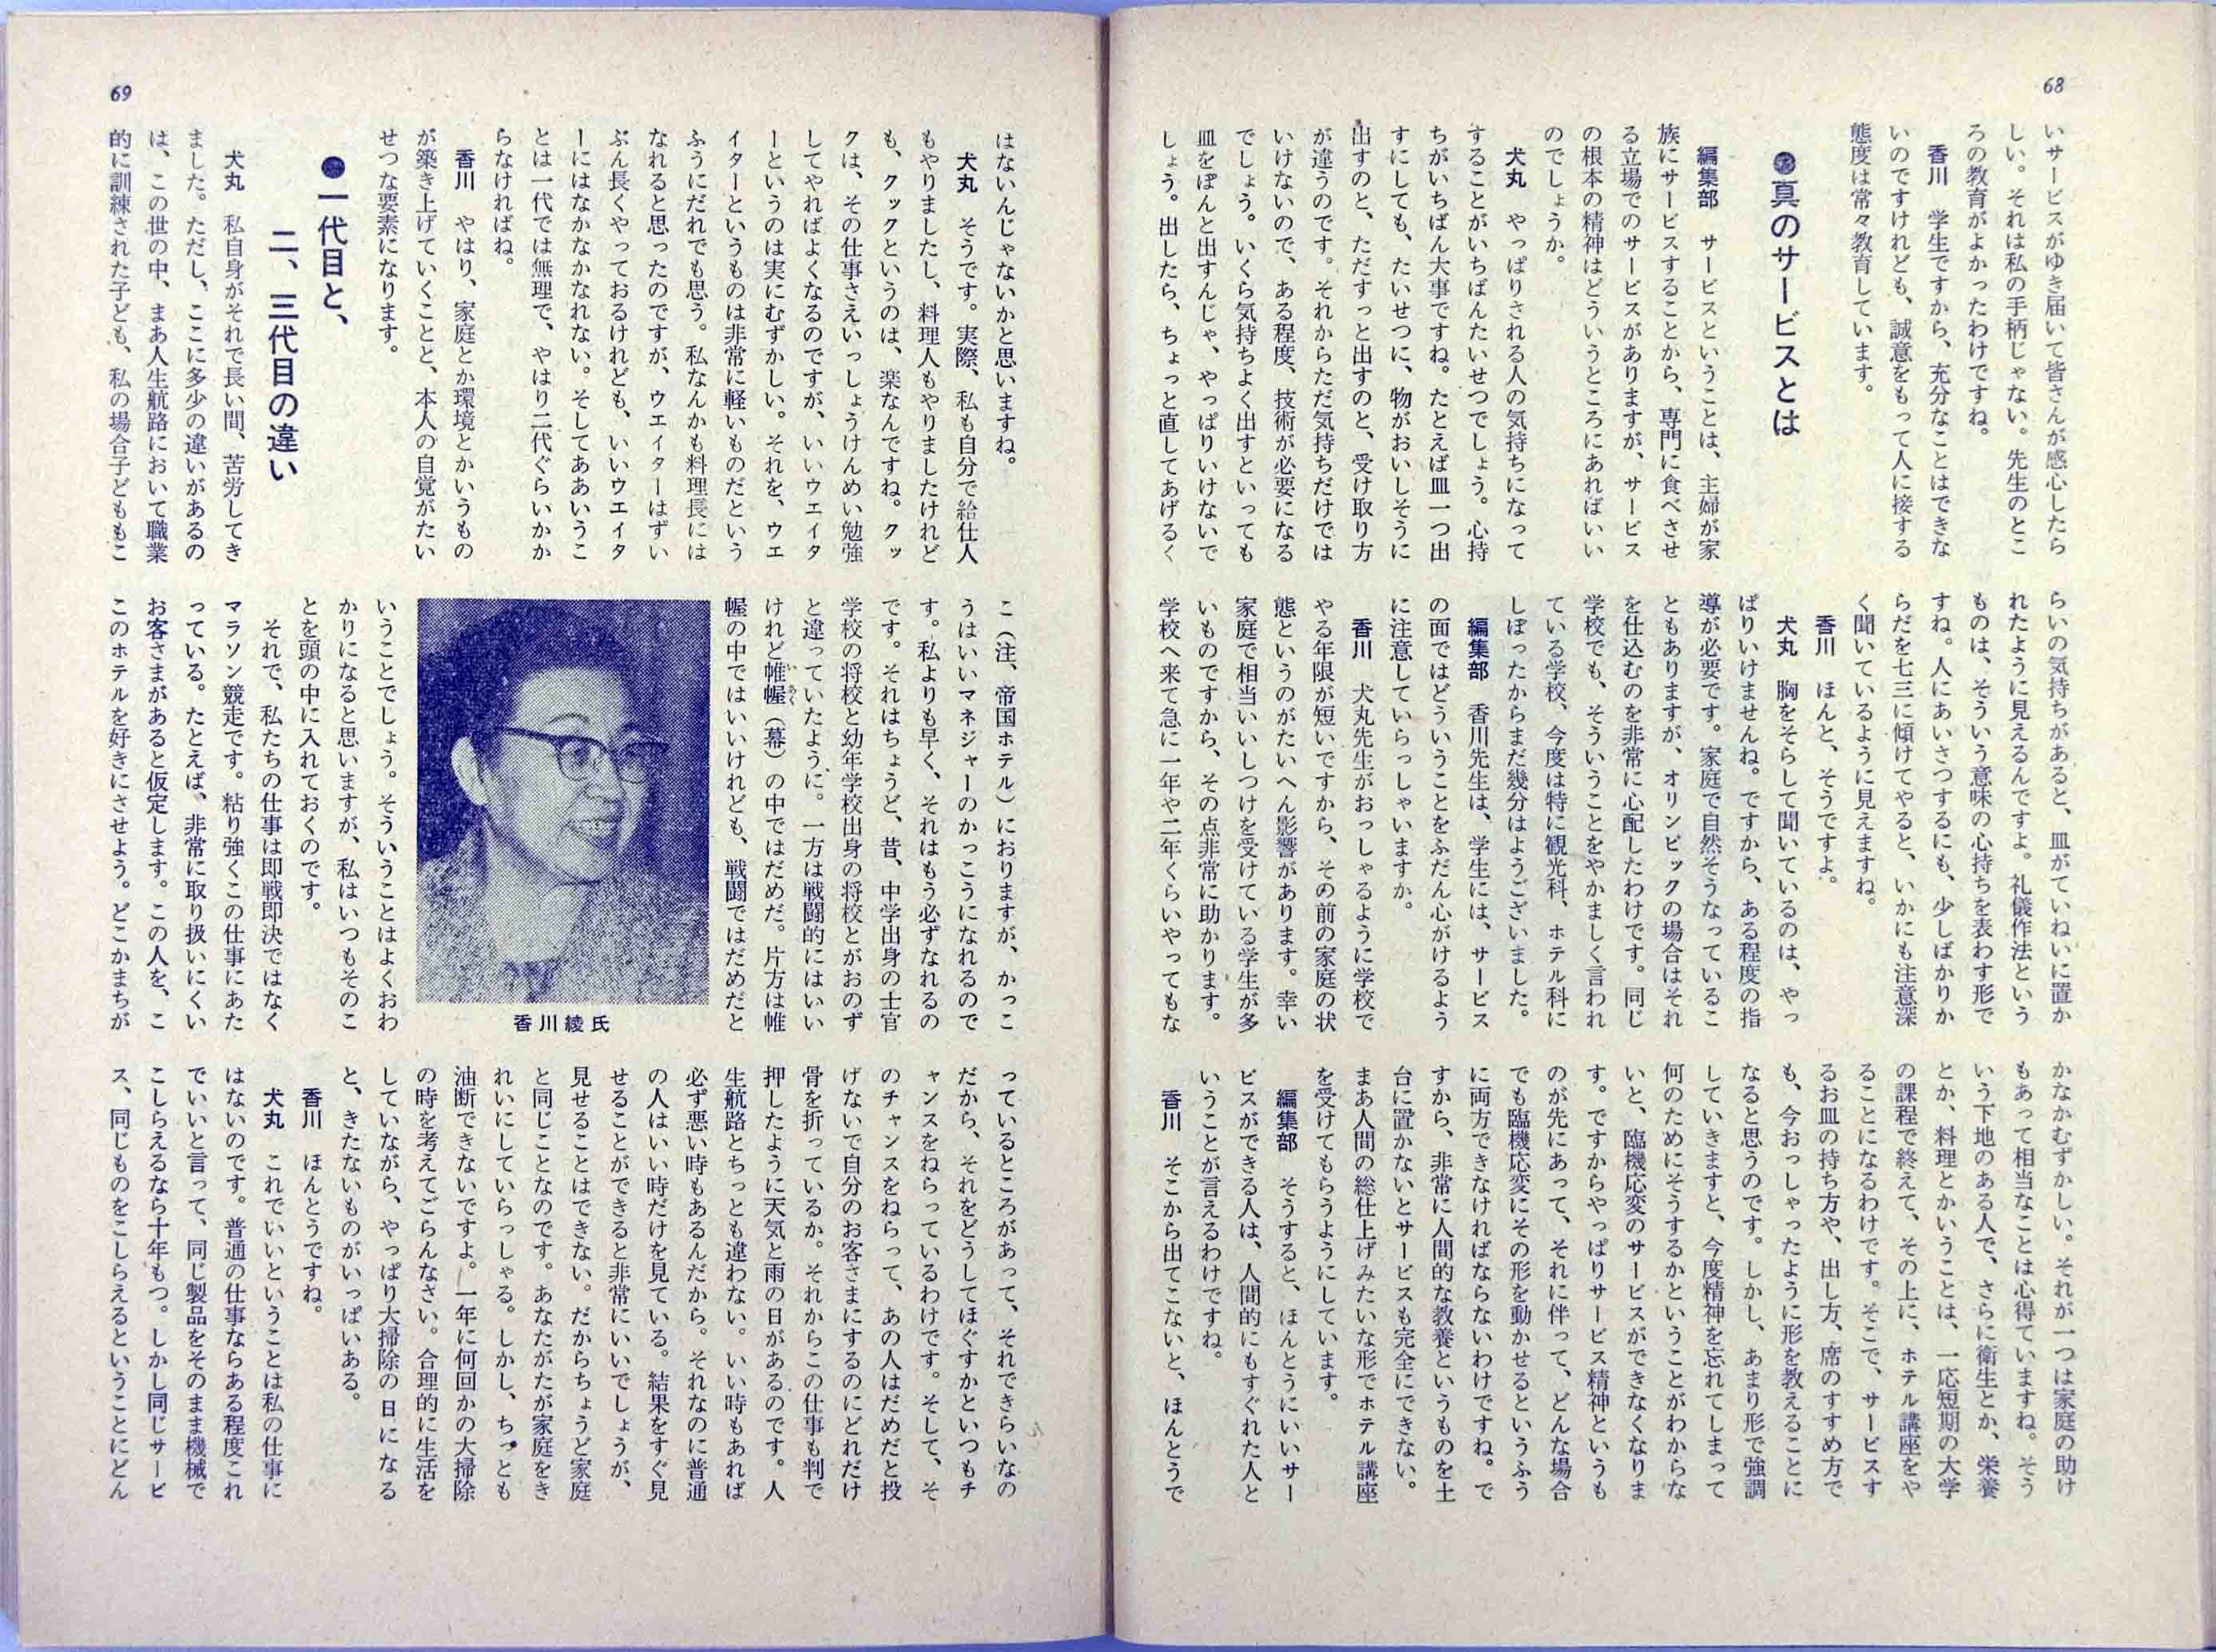 68
いサービスがゆき届いて皆さんが感心したら
しい。それは私の手柄じゃない。先生のとこ
ろの教育がよかったわけですね。
香川　学生ですから、充分なことはできな
いのですけれども、誠意をもって人に接する
態度は常々教育しています。
●真のサービスとは
編集部　サービスということは、主婦が家
族にサービスすることから、専門に食べさせ
る立場でのサービスがありますが、サービス
の根本の精神はどういうところにあればいい
のでしょうか。
犬丸　やっぱりされる人の気持ちになって
することがいちばんたいせつでしょう。心持
ちがいちばん大事ですね。たとえば皿一つ出
すにしても、たいせつに、物がおいしそうに
出すのと、ただすっと出すのと、受け取り方
が違うのです。それからただ気持ちだけでは
いけないので、ある程度、技術が必要になる
でしょう。いくら気持ちよく出すといっても
皿をぽんと出すんじゃ、やっぱりいけないで
しょう。出したら、ちょっと直してあげるく
らいの気持ちがあると、皿がていねいに置か
れたように見えるんですよ。礼儀作法という
ものは、そういう意味の心持ちを表わす形で
すね。人にあいさつするにも、少しばかりか
らだを七三に傾けてやると、いかにも注意深
く聞いているように見えますね。
香川　ほんと、そうですよ。
犬丸　胸をそらして聞いているのは、やっ
ぱりいけませんね。ですから、ある程度の指
導が必要です。家庭で自然そうなっているこ
ともありますが、オリンピックの場合はそれ
を仕込むのを非常に心配したわけです。同じ
学校でも、そういうことをやかましく言われ
ている学校、今度は特に観光科、ホテル科に
しぼったからまだ幾分はようございました。
編集部　香川先生は、学生には、サービス
の面ではどういうことをふだん心がけるよう
に注意していらっしゃいますか。
香川　犬丸先生がおっしゃるように学校で
やる年限が短いですから、その前の家庭の状
態というのがたいへん影響があります。幸い
家庭で相当いいしつけを受けている学生が多
いものですから、その点非常に助かります。
学校へ来て急に一年や二年くらいやってもな
かなかむずかしい。それが一つは家庭の助け
もあって相当なことは心得ていますね。そう
いう下地のある人で、さらに衛生とか、栄養
とか、料理とかいうことは、一応短期の大学
の課程で終えて、その上に、ホテル講座をや
ることになるわけです。そこで、サービスす
るお皿の持ち方や、出し方、席のすすめ方で
も、今おっしゃったように形を教えることに
なると思うのです。しかし、あまり形で強調
していきますと、今度精神を忘れてしまって
何のためにそうするかということがわからな
いと、臨機応変のサービスができなくなりま
す。ですからやっぱりサービス精神というも
のが先にあって、それに伴って、どんな場合
でも臨機応変にその形を動かせるというふう
に両方できなければならないわけですね。で
すから、非常に人間的な教養というものを土
台に置かないとサービスも完全にできない。
まあ人間の総仕上げみたいな形でホテル講座
を受けてもらうようにしています。
編集部　そうすると、ほんとうにいいサー
ビスができる人は、人間的にもすぐれた人と
いうことが言えるわけですね。
香川　そこから出てこないと、ほんとうで
69
はないんじゃないかと思いますね。
犬丸　そうです。実際、私も自分で給仕人
もやりましたし、料理人もやりましたけれど
も、クックというのは、楽なんですね。クッ
クは、その仕事さえいっしょうけんめい勉強
してやればよくなるのですが、いいウエイタ
ーというのは実にむずかしい。それを、ウエ
イターというものは非常に軽いものだという
ふうにだれでも思う。私なんかも料理長には
なれると思ったのですが、ウエイターはずい
ぶん長くやっておるけれども、いいウエイタ
ーにはなかなかなれない。そしてああいうこ
とは一代では無理で、やはり二代ぐらいかか
らなければね。
香川　やはり、家庭とか環境とかいうもの
が築き上げていくことと、本人の自覚がたい
せつな要素になります。
●一代目と、
二、三代目の違い
犬丸　私自身がそれで長い間、苦労してき
ました。ただし、ここに多少の違いがあるの
は、この世の中、まあ人生航路において職業
的に訓練された子ども、私の場合子どももこ
こ（注、帝国ホテル）におりますが、かっこ
うはいいマネジャーのかっこうになれるので
す。私よりも早く、それはもう必ずなれるの
です。それはちょうど、昔、中学出身の士官
学校の将校と幼年学校出身の将校とがおのず
と違っていたように。一方は戦闘的にはいい
けれど帷幄（幕）の中ではだめだ。片方は帷
幄の中ではいいけれども、戦闘ではだめだと
香川綾氏
いうことでしょう。そういうことはよくおわ
かりになると思いますが、私はいつもそのこ
とを頭の中に入れておくのです。
それで、私たちの仕事は即戦即決ではなく
マラソン競走です。粘り強くこの仕事にあた
っている。たとえば、非常に取り扱いにくい
お客さまがあると仮定します。この人を、こ
このホテルを好きにさせよう。どこかまちが
っているところがあって、それできらいなの
だから、それをどうしてほぐすかといつもチ
ャンスをねらっているわけです。そして、そ
のチャンスをねらって、あの人はだめだと投
げないで自分のお客さまにするのにどれだけ
骨を折っているか。それからこの仕事も判で
押したように天気と雨の日があるのです。人
生航路とちっとも違わない。いい時もあれば
必ず悪い時もあるんだから。それなのに普通
の人はいい時だけを見ている。結果をすぐ見
せることができると非常にいいでしょうが、
見せることはできない。だからちょうど家庭
と同じことなのです。あなたがたが家庭をき
れいにしていらっしゃる。しかし、ちっとも
油断できないですよ。一年に何回かの大掃除
の時を考えてごらんなさい。合理的に生活を
していながら、やっぱり大掃除の日になる
と、きたないものがいっぱいある。
香川　ほんとうですね。
犬丸　これでいいということは私の仕事に
はないのです。普通の仕事ならある程度これ
でいいと言って、同じ製品をそのまま機械で
こしらえるなら十年もつ。しかし同じサービ
ス、同じものをこしらえるということにどん